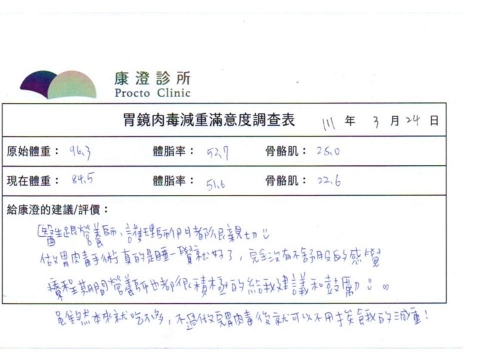 康澄診所
Procto Clinic
胃鏡肉毒減重滿意度調查表 111 年 3 月 24 日
原始體重： 96.3 體脂率： 52.7 骨骼肌： 25.0
現在體重： 84.5 體脂率： 51.6 骨骼肌： 22.6
給康澄的建議/評價：
醫生跟營養師、護理師們都很親切
做胃肉毒手術真的是睡一覺就好了，完全沒有不舒服的感覺
療程期間營養師也都很積極的給我建議和鼓勵
雖然本來就吃不多，不過做完胃肉毒後就可以不用挨餓的減重！